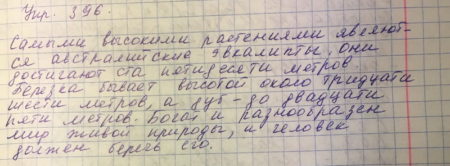 Упр. 396.
Самыми высокими растениями являют-
ся австралийские эвкалипты, они
достигают ста пятидесяти метров
березка бывает высотой около тридцати
шести метров, а дуб - до двадцати
пяти метров. Богат и разнообразен
мир живой природы, и человек
должен беречь его.